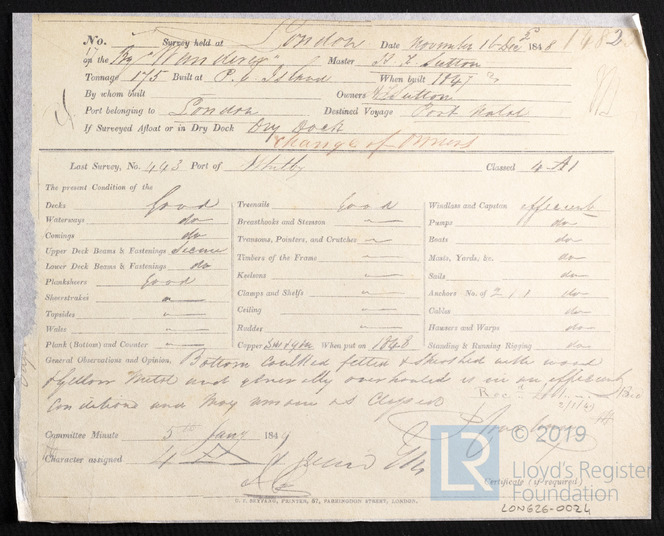 No. Survey held at London Date November 16 Dec 2d 1848 1482
17
on the Bg "Wanderer" Master H. F. Sutton
Tonnage 175 Built at P. E. Island When built 1847
By whom built Owners Sutton
Port belonging to London Destined Voyage Port Natal
If Surveyed Afloat or in Dry Dock Dry Dock
Change of Owners
Last Survey, No. 443 Port of Whitby Classed 4 A1
The present Condition of the
Decks good Treenails good Windlass and Capston efficient
Waterways do Breasthooks and Stemson " Pumps do
Comings do Transoms, Pointers, and Crutches " Boats do
Upper Deck Beams & Fastenings Secure Timbers of the Frame " Masts, Yards, &c. do
Lower Deck Beams & Fastenings do Keelsons " Sails do
Planksheers good Clamps and Shelfs " Anchors No. of 2, 1, 1 do
Sheerstrakes " Ceiling " Cables do
Topsides " Rudder " Hawsers and Warps do
Wales "
Plank (Bottom) and Counter " Copper When put on 1848 Standing & Running Rigging do
General Observations and Opinion, Bottom Caulked felted & sheathed with wood
& Yellow Metal and generally overhauled is in an efficient
Condition and may remain as Classed
Committee Minute 5th Jany 1849
Character assigned 4
Certificate (if required)
© 2019
LR
Lloyd's Register
Foundation
LON626-0024